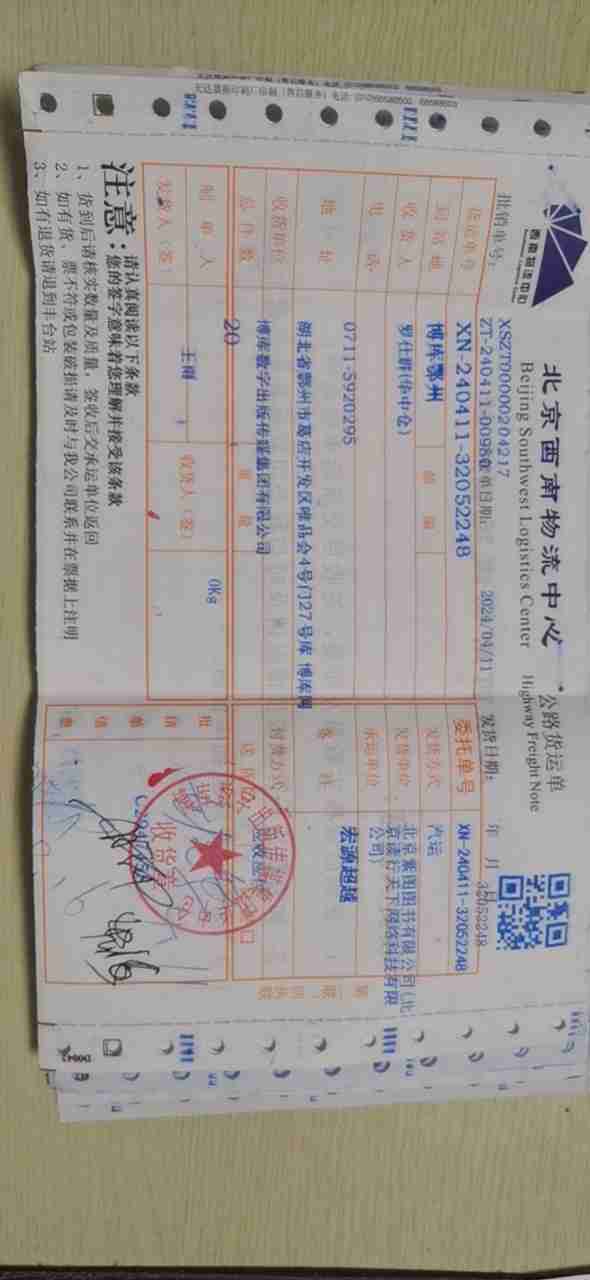 西南物流中心
北京西南物流中心
Beijing Southwest Logistics Center
公路货运单
Highway Freight Note
批销单号：
XSZT00000204217
ZT-240411-0098
制单日期：
2024/04/11
发货日期： 年 月 日
32052248
货运单号 XN-240411-32052248 委托单号 XN-240411-32052248
到货地 博库鄂州 邮编 发货方式 汽运
收货人 罗仕群(华中仓) 发货单位 北京紫图图书有限公司(北京读行天下网络科技有限公司)
电话 0711-5920295 承运单位 宏源超越
地址 湖北省鄂州市葛店开发区唯品会4号门27号库 博库网
收货单位 博库数字出版传媒集团有限公司 付货方式
总件数 20 重量 0Kg
制单人 王雨 收货人（签）
发货人（签）
收货
注意：
请认真阅读以下条款
您的签字意味着您理解并接受该条款
1、货到后请核实数量及质量，签收后交承运单位返回
2、如有货、票不符或包装破损请及时与我公司联系并在票据上注明
3、如有退货请退到丰台站